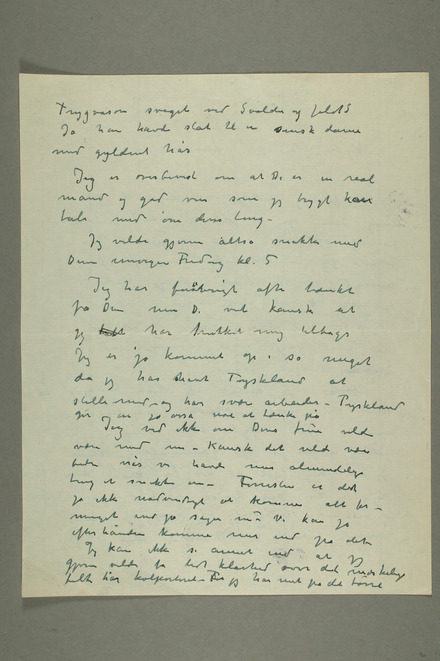 Trygvason sveget ved Svolder og
Ja han havde slat til en dansk dame
med gyldent hår
Jeg er overbevist om at De er en reel
mand og god ven som jeg trygt kan
tale med om disse ting-
Jeg vilde gjerne altså snakke med
Dem imorgen Fredag kl. 5
Jeg har forøvrigt ofte tænkt
på Dem men De vet kanske at
jeg har trukket mig tilbage
Jeg er jo kommet op i så meget
da jeg har Tyskland at
stelle med - og har svær arbeide - Tyskland
gir en jo også noe at tænke på
Jeg ved ikke om Deres frue vilde
være med - Kanske det vilde være
bedre når vi havde mer almindelige
ting at snakke om - Forresten er det
jo ikke nødvendigt at komme alt for
meget ind på sagen må vi kan jo
efterhånden komme mer ind på det
Jeg kan ikke si annet end at jeg
gjerne vilde få lidt klarhed over det mærkelige
har kolporteret - jeg har met på de